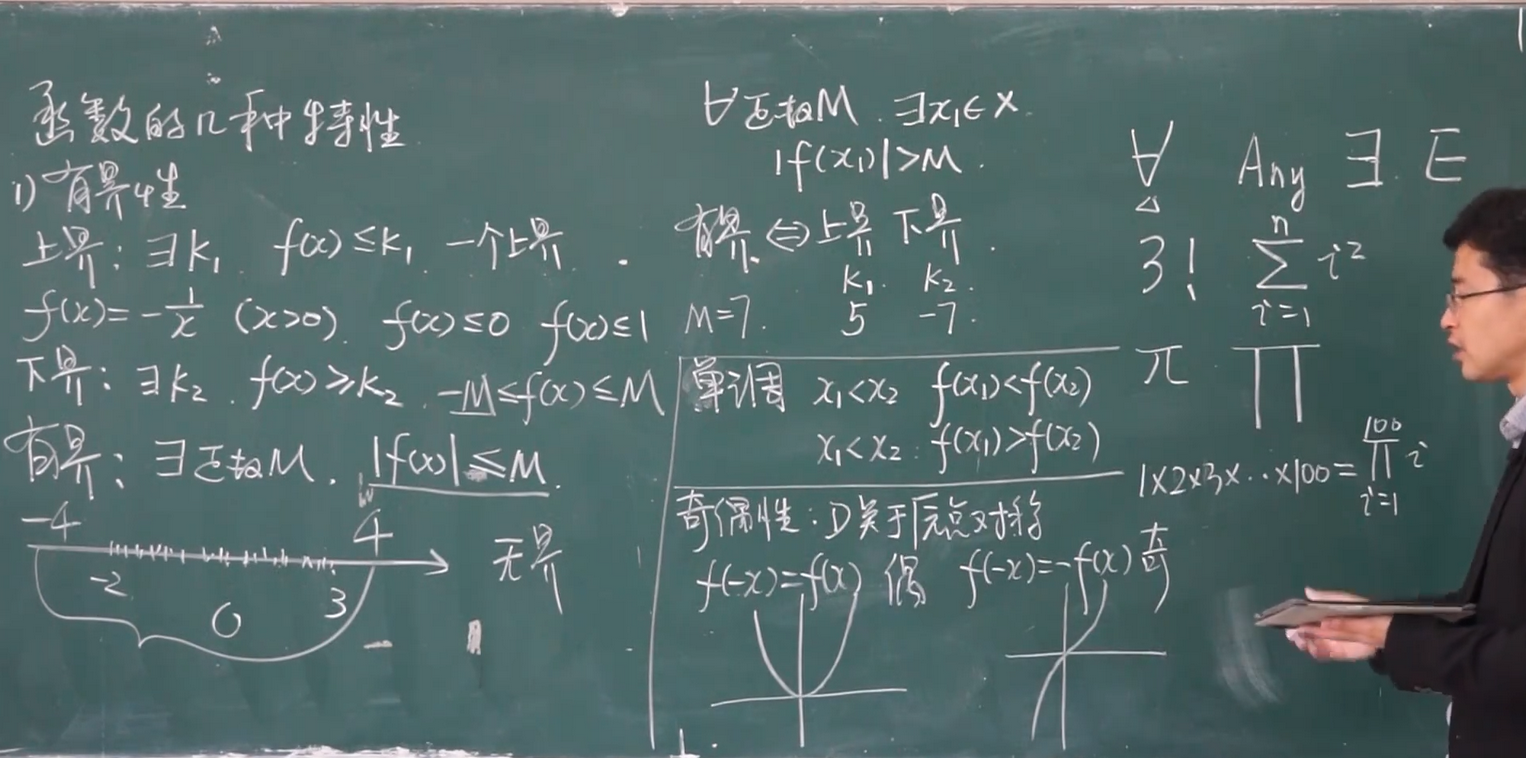 函数的几种特性
1) 有界性
上界: ∃k₁ f(x)≤k₁ 一个上界.
f(x)=-1/x (x>0). f(x)≤0 f(x)≤1
下界: ∃k₂. f(x)≥k₂ -M≤f(x)≤M
有界: ∃正数M. |f(x)|≤M.
-4 4
-2 0 3
无界
∀正数M. ∃x₁∈X.
|f(x₁)|>M.
有界. ⇔ 上界 下界.
k₁. k₂.
M=7. 5 -7.
单调 x₁<x₂ f(x₁)<f(x₂)
x₁<x₂. f(x₁)>f(x₂)
奇偶性: D关于原点对称
f(-x)=f(x) 偶 f(-x)=-f(x) 奇
∀ Any ∃. E
∃! ∑ᵢ₌₁ⁿ i²
π ∏
1×2×3×..×100=∏ᵢ₌₁¹⁰⁰ i